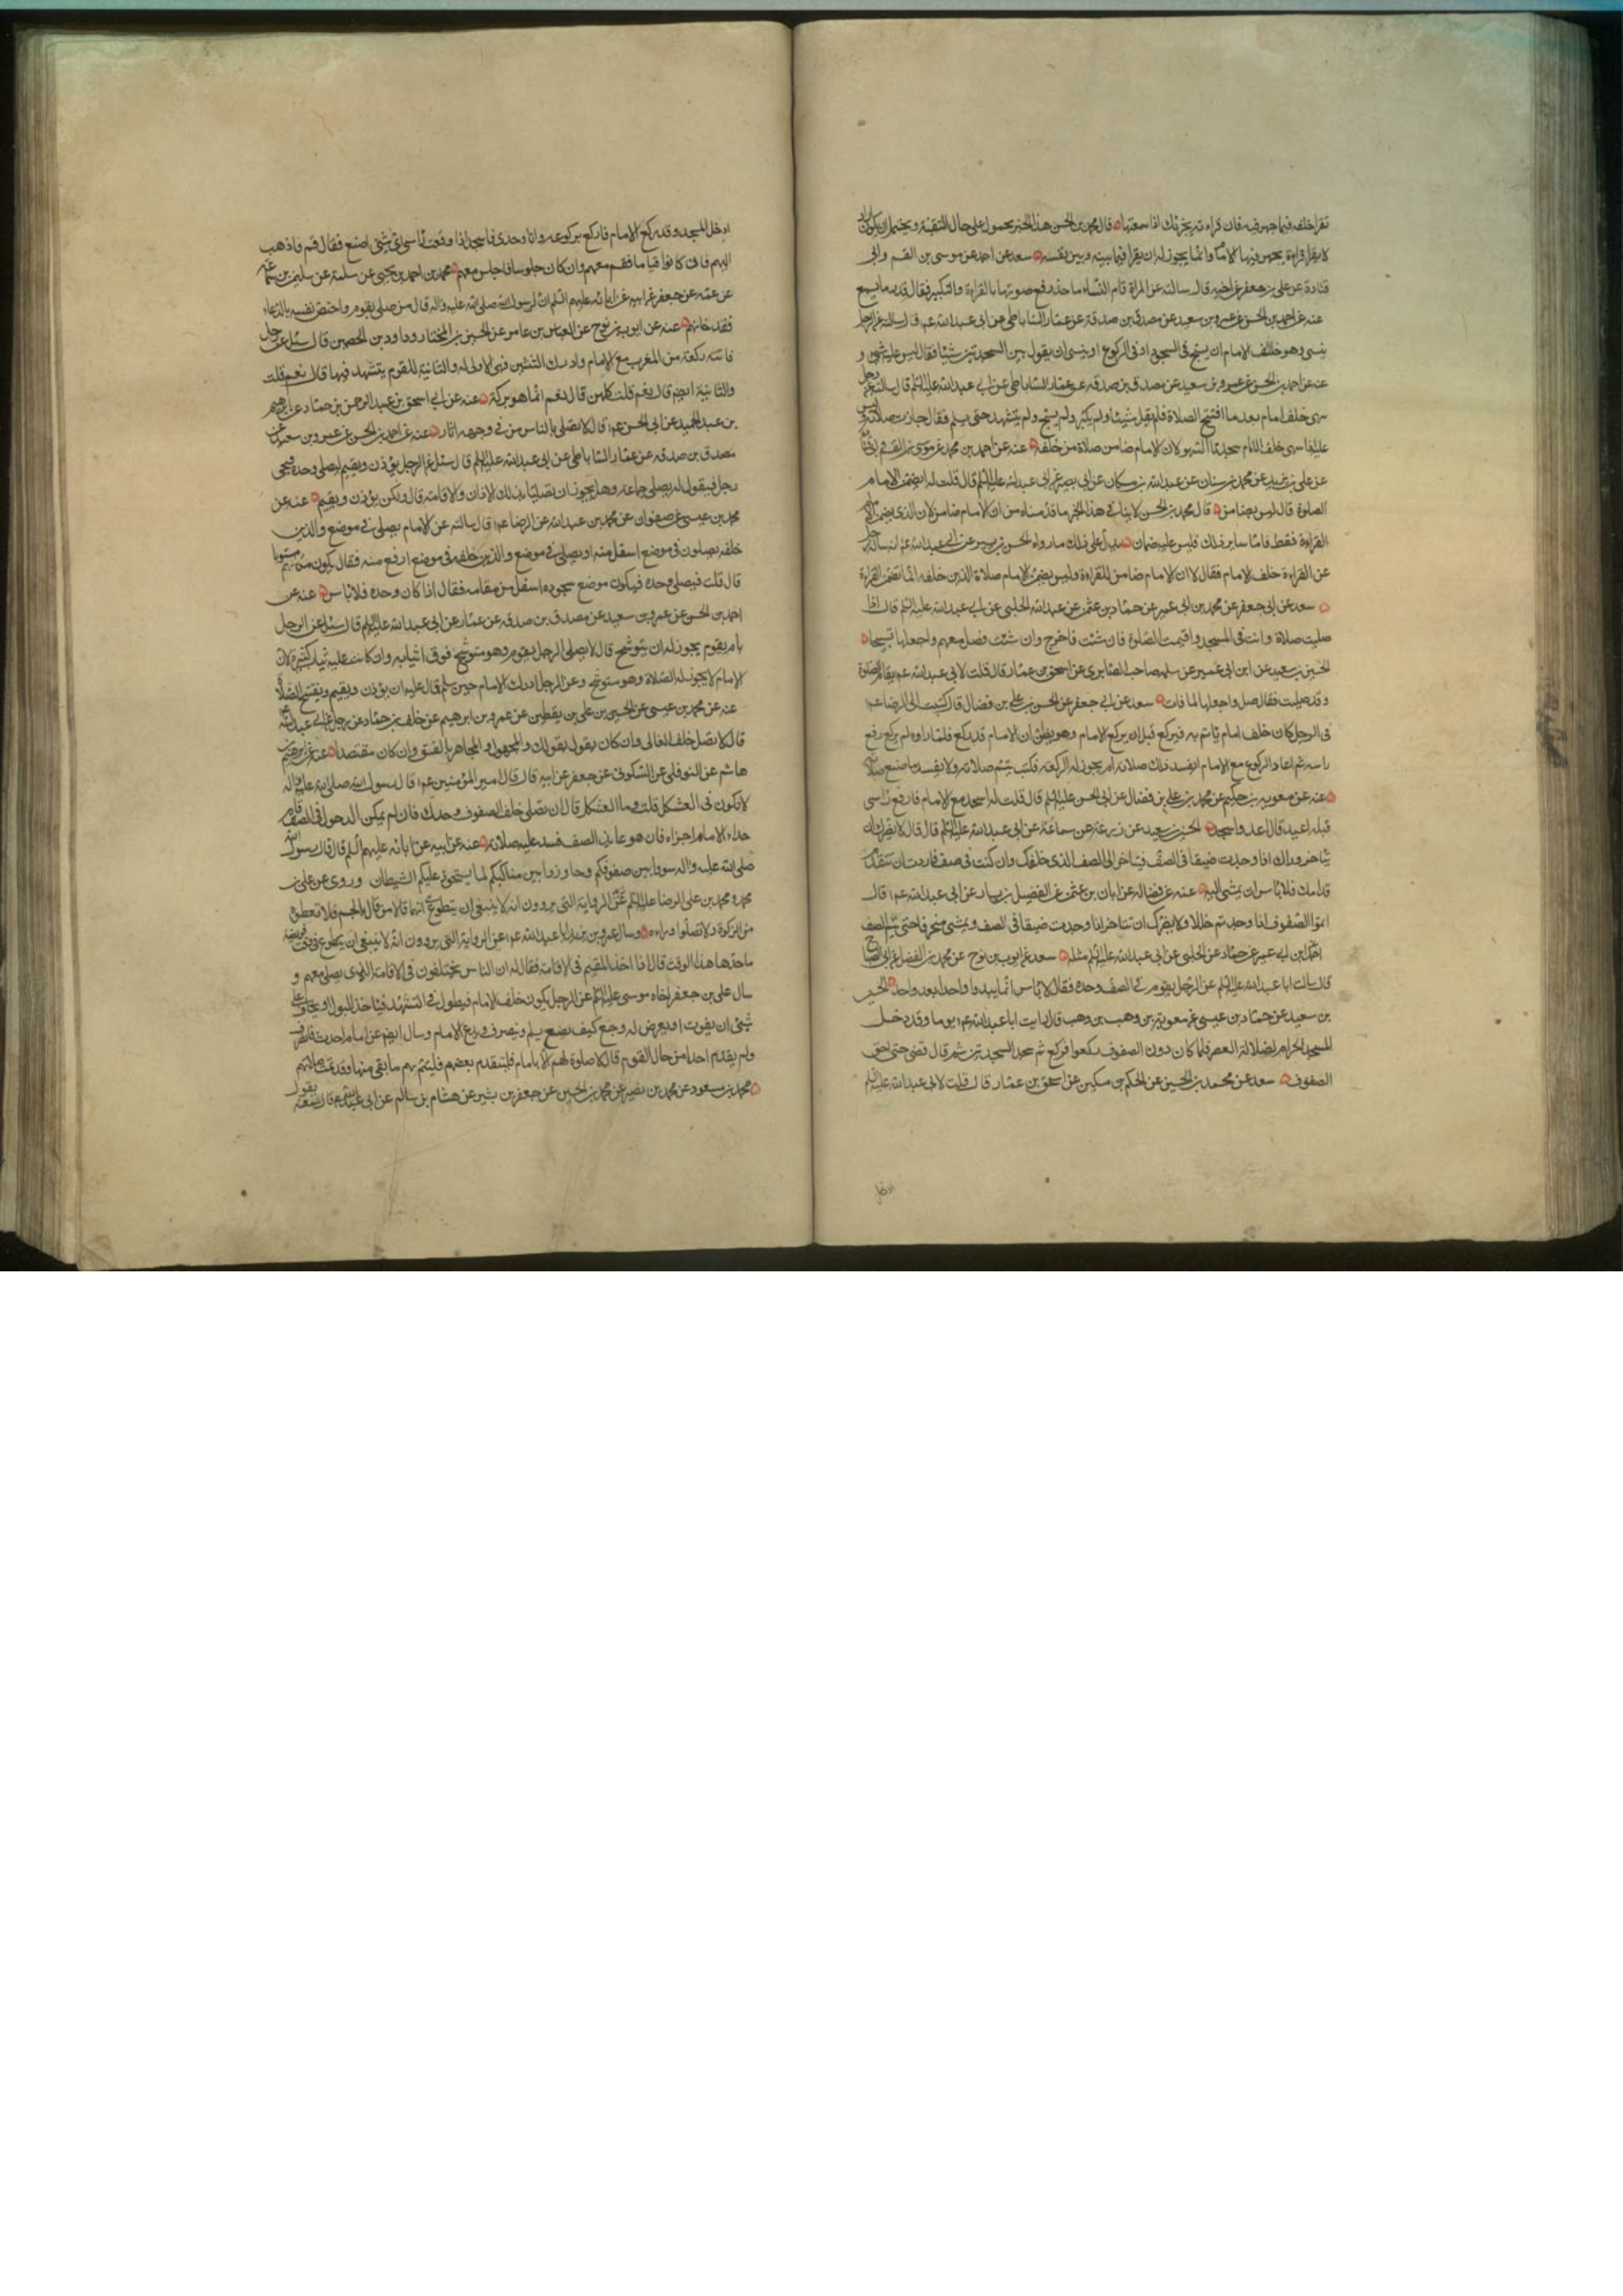 تقرا خلفه فيما جهر فيه فان قراءته يجزئك اذا سمعتها قال محمد بن الحسن هذا الخبر محمول على حال التقية ويحتمل ان يكون اراد
لا يقرا قراءة يجهر فيها كالامام وانما يجوز له ان يقرا فيما بينه وبين نفسه سعد عن احمد عن موسى بن القسم وابى
قتادة عن على بن جعفر عن اخيه قال سالته عن المراة تام النساء ما حد رفع صوتها بالقراءة والتكبير فقال قدر ما تسمع
عنه عن احمد بن الحسن عن عمرو بن سعيد عن مصدق بن صدقة عن عمار الساباطى عن ابى عبد الله ع قال سالته عن الرجل
ينسى وهو خلف الامام ان يسبح فى السجود او فى الركوع او ينسى ان يقول بين السجدتين شيئا فقال ليس عليه شى و
عنه عن احمد بن الحسن عن عمرو بن سعيد عن مصدق بن صدقه عن عمار الساباطى عن ابى عبد الله عليه السلم قال سالته عن رجل
سهى خلف امام بعد ما افتتح الصلاة فلم يقل شيئا ولم يكبر ولم يسبح ولم يتشهد حتى يسلم فقال جازت صلاته وليس
عليه اذا سهى خلف الامام سجدتا السهو لان الامام ضامن صلاة من خلفه عنه عن احمد بن محمد عن موسى بن القسم
عن على بن محمد بن سنان عن عبد الله بن مسكان عن ابى بصير عن ابى عبد الله عليه السلم قال قلت له ايضمن الامام
الصلوة قال ليس بضامن قال محمد بن الحسن لا ينافى هذا الخبر ما قدمناه من ان الامام ضامن لان الذى يضمن الامام
القراءة فقط فاما ساير ذلك فليس عليه ضمان يدل على ذلك ما رواه الحسين بن بشير عن ابى عبد الله ع انه ساله رجل
عن القراءة خلف الامام فقال لا ان الامام ضامن للقراءة وليس يضمن الامام صلاة الذين خلفه انما يضمن القراءة
سعد عن ابى جعفر عن محمد بن ابى عمير عن حماد بن عثمن عن عبيد الله الحلبى عن ابى عبد الله عليه السلم قال اذا
صليت صلاة وانت فى المسجد واقيمت الصلوة فان شئت فاخرج وان شئت فصل معهم واجعلها تسبيحا
الحسين بن سعيد عن ابن ابى عمير عن سلمه صاحب السابرى عن اسحق بن عمار قال قلت لابى عبد الله ع يقام الصلوة
وقد صليت فقال صل واجعلها لما فات سعد عن ابى جعفر عن الحسن بن على بن فضال قال كتبت الى الرضا ع
فى الرجل كان خلف امام ياتم به فيركع قبل ان يركع الامام وهو يظن ان الامام قد ركع فلما راه لم يركع رفع
راسه ثم اعاد الركوع مع الامام ايفسد ذلك صلاته ام يجوز له الركعة فكتب يتم صلاته ولا يفسد بما صنع صلاته
عنه عن معوية بن حكيم عن محمد بن على بن فضال عن ابى الحسن عليه السلم قال قلت له اسجد مع الامام فارفع راسى
قبله اعيد قال اعد واسجد الحسين بن سعيد عن زرعة عن سماعة عن ابى عبد الله عليه السلم قال قال لا يضرك ان
تتاخر وراك اذا وجدت ضيقا فى الصف فتتاخر الى الصف الذى خلفك وان كنت فى صف فاردت ان تتقدم
قدامك فلا باس ان يمشى اليه عنه عن فضاله عن ابان بن عثمن عن الفضيل بن يسار عن ابى عبد الله ع قال
اتموا الصفوف اذا وجدتم خللا ولا يضرك ان تتاخر اذا وجدت ضيقا فى الصف وتمشى منحرفا حتى تتم الصف
ابن ابى عمير عن حماد عن الحلبى عن ابى عبد الله عليه السلم مثله سعد عن ايوب بن نوح عن محمد بن الفضل عن ابى الصباح
قال سالت ابا عبد الله عليه السلم عن الرجل يقوم فى الصف وحده فقال لا باس انما يبدوا واحد بعد واحد الحسين
بن سعيد عن حماد بن عيسى عن معوية بن وهب قال رايت ابا عبد الله ع يوما وقد دخل
المسجد الحرام لصلاة العصر فلما كان دون الصفوف ركعوا فركع ثم سجد السجدتين ثم قال قضى حتى لحق
الصفوف سعد عن محمد بن الحسين عن الحكم بن مسكين عن اسحق بن عمار قال قلت لابى عبد الله عليه السلم
ادخل
ادخل المسجد وقد ركع الامام فاركع بركوعه وانا وحدى فاسجد فاذا رفعت راسى اى شى اصنع فقال قم فاذهب
اليهم فان كانوا قياما فقم معهم وان كان جلوسا فاجلس معهم محمد بن احمد بن يحيى عن سلمة عن سليمن بن سماعة
عن عمه عن جعفر عن ابيه عن ابائه عليهم السلم ان رسول الله صلى الله عليه واله قال من صلى بقوم واختص نفسه بالدعاء
فقد خانهم عنه عن ايوب بن نوح عن العباس بن عامر عن الحسين بن المختار وداود بن الحصين قال سئل عن رجل
فاتته ركعة من المغرب مع الامام وادرك الثنتين فهى الاولى له والثانية للقوم يتشهد فيها قال نعم قلت
والثانية ايضم قال نعم قلت كلهن قال نعم انما هو بركة عنه عن ابى اسحق عن عبد الرحمن بن حماد عن ابرهيم
بن عبد الحميد عن ابى الحسن ع قال لا تصلى بالناس من فى وجهه اثار عنه عن احمد بن الحسن عن عمرو بن سعيد عن
مصدق بن صدقه عن عمار الساباطى عن ابى عبد الله عليه السلم قال سئل عن الرجل يؤذن ويقيم ليصلى وحده فيجى
رجل فيقول له يصلى جماعة وهل يجوز ان يصليا بذلك الاذان والاقامة قال لا ولكن يؤذن ويقيم عنه عن
محمد بن عيسى عن صفوان عن محمد بن عبد الله عن الرضا ع قال سالته عن الامام يصلى فى موضع والذين
خلفه يصلون فى موضع اسفل منه او يصلى فى موضع والذين خلفه فى موضع ارفع منه فقال يكون مكانهم مستويا
قال قلت فيصلى وحده فيكون موضع سجوده اسفل من مقامه فقال اذا كان وحده فلا باس عنه عن
احمد بن الحسن عن عمرو بن سعيد عن مصدق بن صدقه عن عمار عن ابى عبد الله عليه السلم قال سئل عن الرجل
يام بقوم يجوز له ان يتوشح قال لا يصلى الرجل بقوم وهو متوشح فوق اثيابه وان كانت عليه ثياب كثيرة لان
الامام لا يجوز له الصلاة وهو متوشح وعن الرجل ادرك الامام حين سلم قال عليه ان يؤذن ويقيم ويفتتح الصلاة
عنه عن محمد بن عيسى عن الحسن بن على بن يقطين عن عمرو بن ابرهيم عن خلف بن حماد عن رجل عن ابى عبد الله
قال لا تصل خلف الغالى وان كان يقول بقولك والمجهول والمجاهر بالفسق وان كان مقتصدا عنه عن ابرهيم بن
هاشم عن النوفلى عن السكونى عن جعفر عن ابيه قال قال امير المؤمنين ع قال رسول الله صلى الله عليه واله
لا تكون فى العثكل قلت وما العثكل قال ان تصلى خلف الصفوف وحدك فان لم يمكن الدخول فى الصف قام
حذاء الامام اجزاه فان هو عاند الصف فسد عليه صلاته عنه عن ابيه عن ابائه عليهم السلم قال قال رسول الله
صلى الله عليه واله سووا بين صفوفكم وحاذوا بين مناكبكم لما يستحوذ عليكم الشيطان وروى عن على بن
محمد ومحمد بن على الرضا عليه السلم انهما قالا من قال بالجسم فلا تعطوه
من الزكوة ولا تصلوا وراءه وسال عمرو بن يزيد ابا عبد الله ع عن الرواية التى يروون انه لا ينبغى ان يتطوع فى وقت فريضة
ما حد هذا الوقت قال اذا اخذ المقيم فى الاقامة فقال له ان الناس يختلفون فى الاقامة قال الذى يصلى معهم و
سال على بن جعفر اخاه موسى عليه السلم عن الرجل يكون خلف الامام فيطول فى التشهد فياخذ البول او يخاف على
شئ ان يفوت او يعرض له وجع كيف يصنع يسلم وينصرف ويدع الامام وسال ايضم عن امام احدث فانصرف
ولم يقدم احدا ما حال القوم قال لا صلوة لهم الا بامام فليتقدم بعضهم فليتم بهم ما بقى منها وقد تمت صلاتهم
محمد بن مسعود عن محمد بن نصير عن محمد بن الحسين عن جعفر بن بشير عن هشام بن سالم عن ابى عبد الله ع قال سمعته يقول